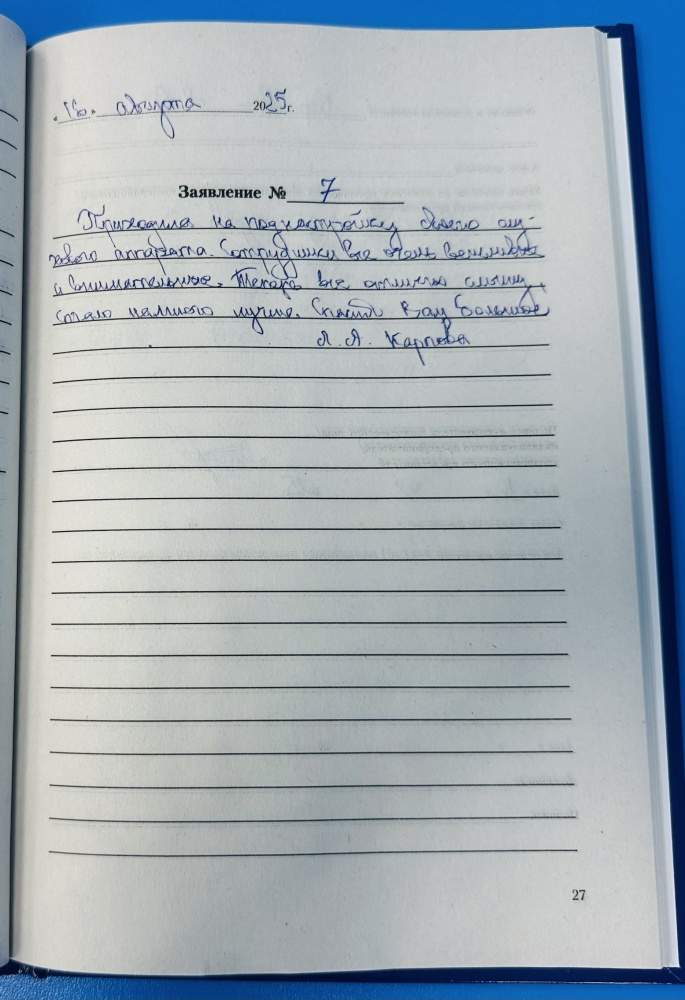 "16" августа 2025 г.
Заявление № 7
Приходила на поднастройку своего слу-
хового аппарата. Сотрудники все очень вежливые
и внимательные. Теперь все отлично слышу,
стало намного лучше. Спасибо Вам большое
Л.А. Карпова
27